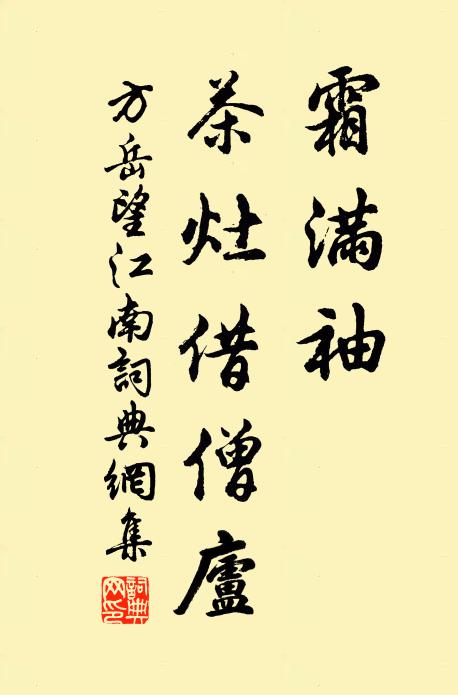 霜满袖
茶灶借僧廬
方岳望江南詞典網集
詞典网印